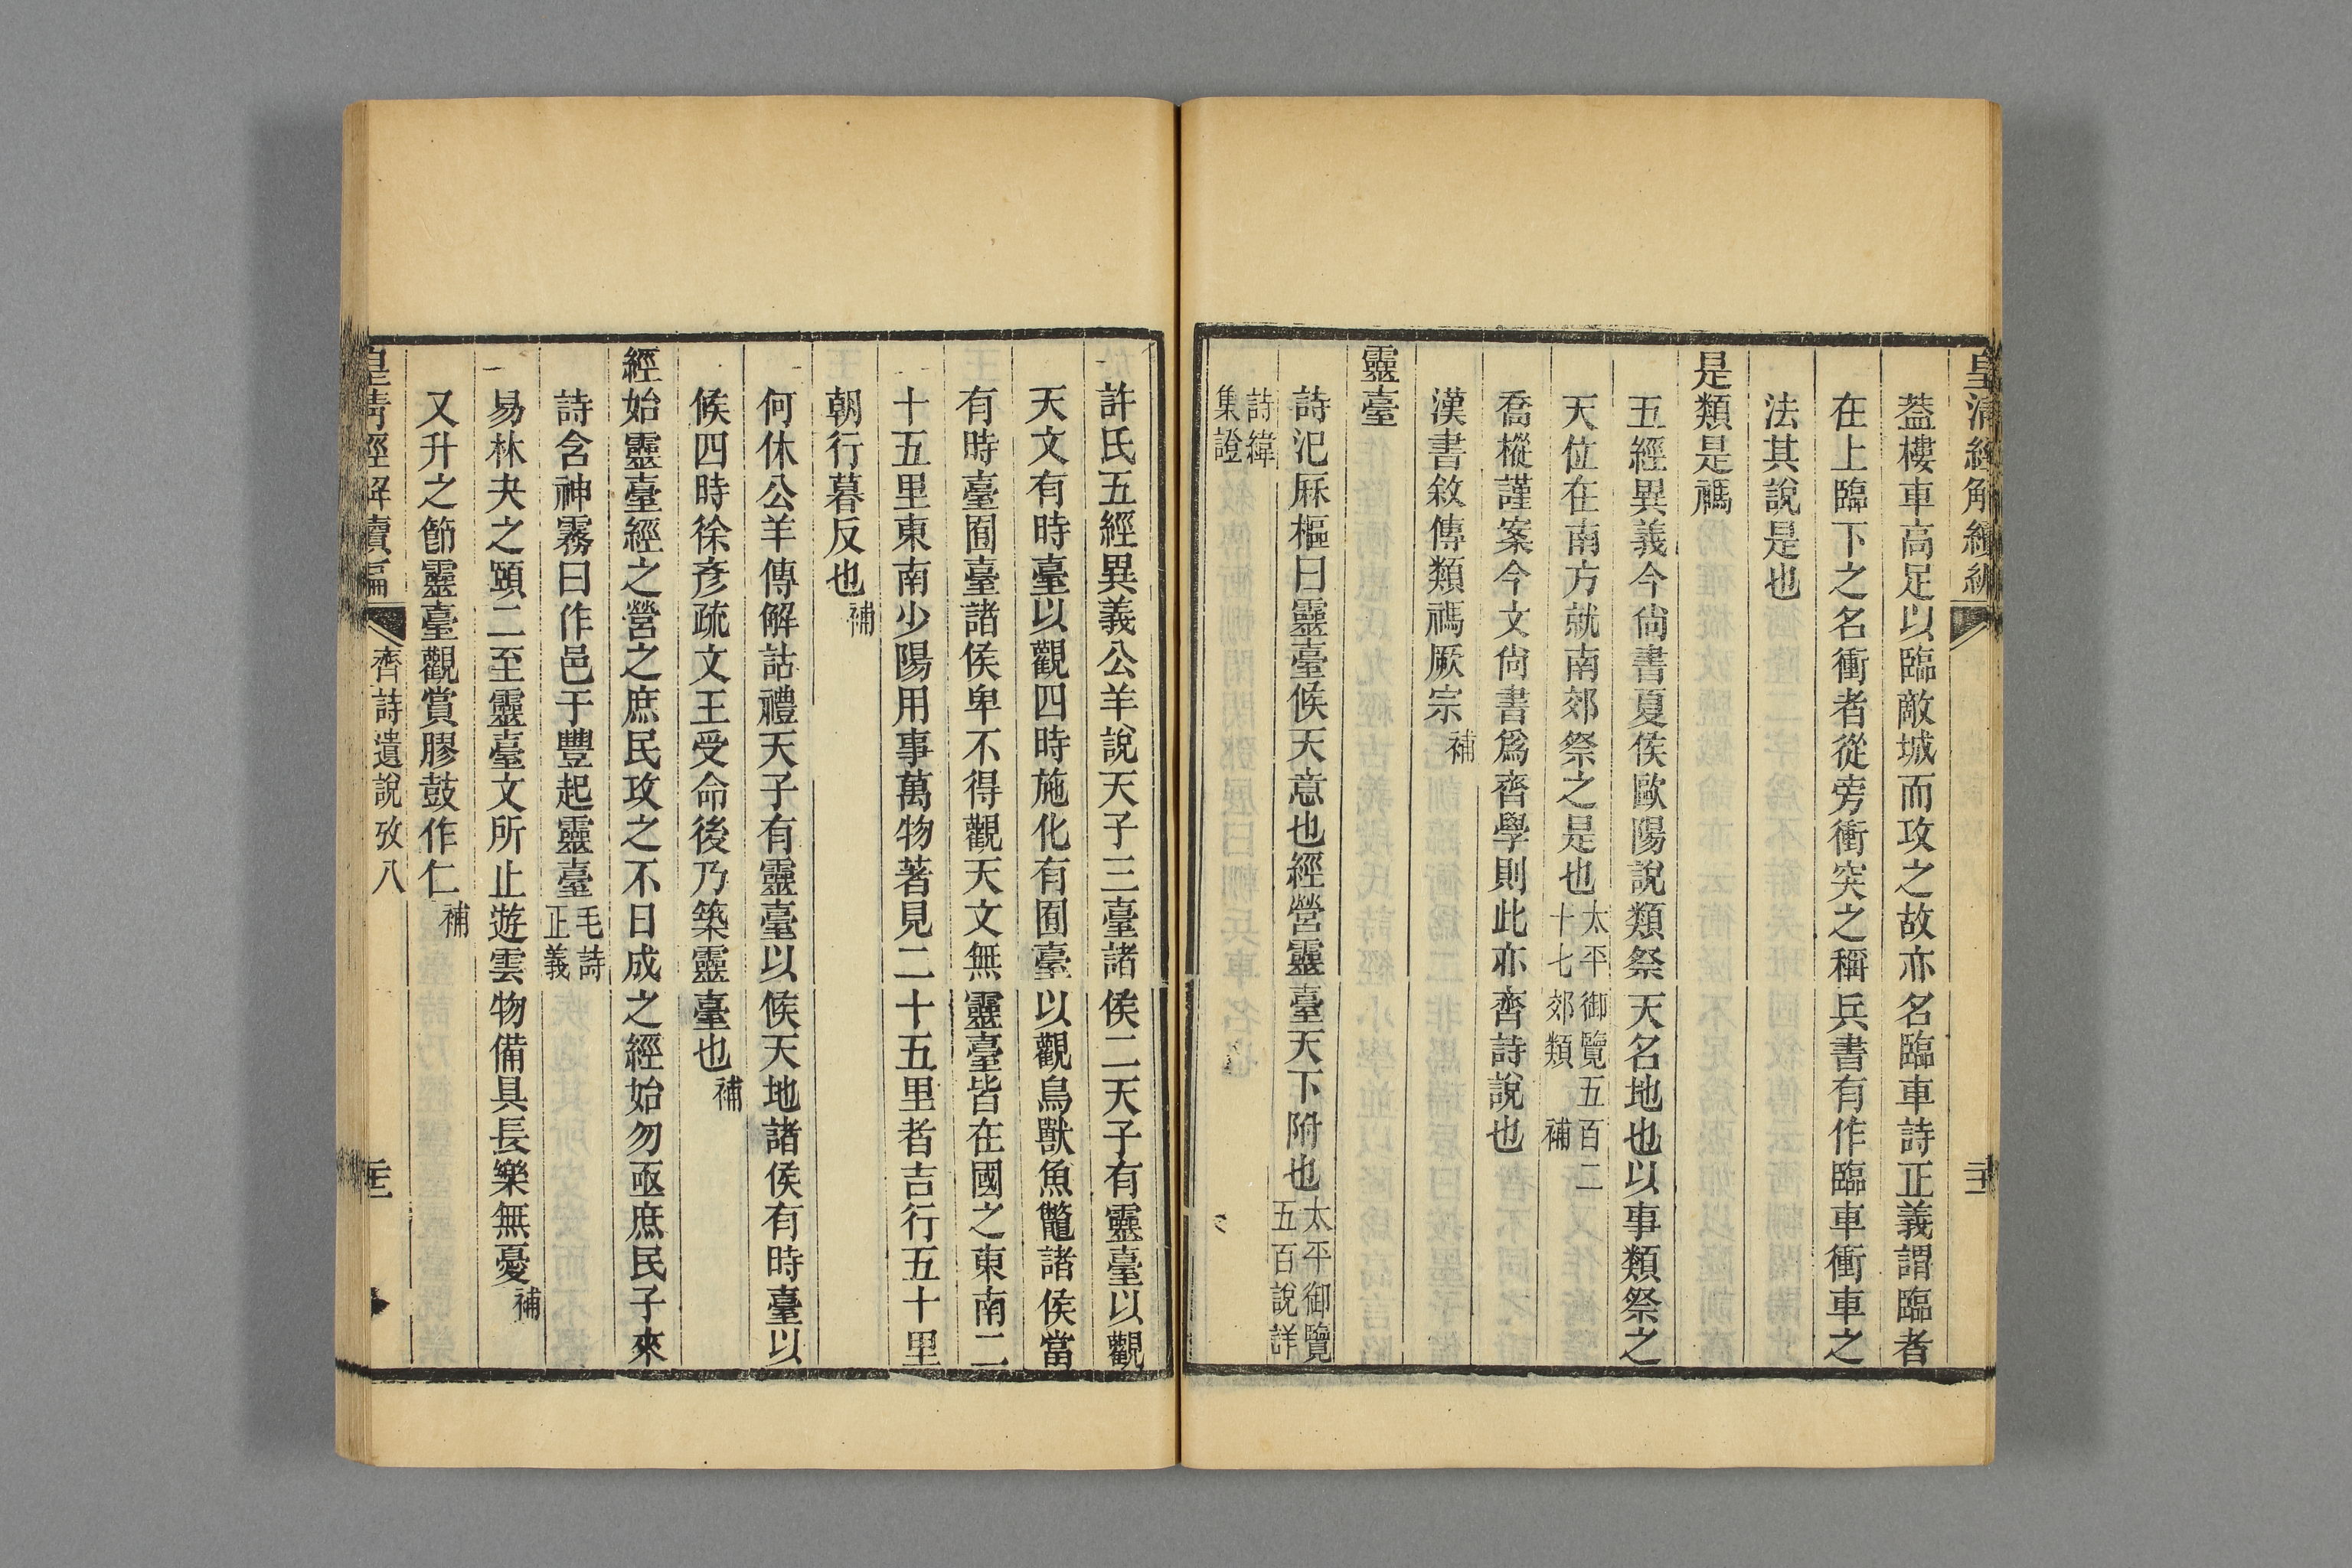 皇清經解續編
蓋樓車高足以臨敵城而攻之故亦名臨車詩正義謂臨者
在上臨下之名衝者從旁衝突之稱兵書有作臨車衝車之
法其說是也
是類是禡
五經異義今尙書夏侯歐陽說類祭天名地也以事類祭之
天位在南方就南郊祭之是也太平御覽五百二十七郊類補
喬樅謹案今文尙書爲齊學則此亦齊詩說也
漢書敘傳類禡厥宗補
靈臺
詩汜厤樞曰靈臺候天意也經營靈臺天下附也太平御覽五百說詳
詩緯集證
許氏五經異義公羊說天子三臺諸侯二天子有靈臺以觀
天文有時臺以觀四時施化有囿臺以觀鳥獸魚鼈諸侯當
有時臺囿臺諸侯卑不得觀天文無靈臺皆在國之東南二
十五里東南少陽用事萬物著見二十五里者吉行五十里
朝行暮反也補
何休公羊傳解詁禮天子有靈臺以候天地諸侯有時臺以
候四時徐彥疏文王受命後乃築靈臺也補
經始靈臺經之營之庶民攻之不日成之經始勿亟庶民子來
詩含神霧曰作邑于豐起靈臺毛詩正義
易林夬之頤二至靈臺文所止遊雲物備具長樂無憂補
又升之節靈臺觀賞膠鼓作仁補
皇清經解續編 齊詩遺說攷八